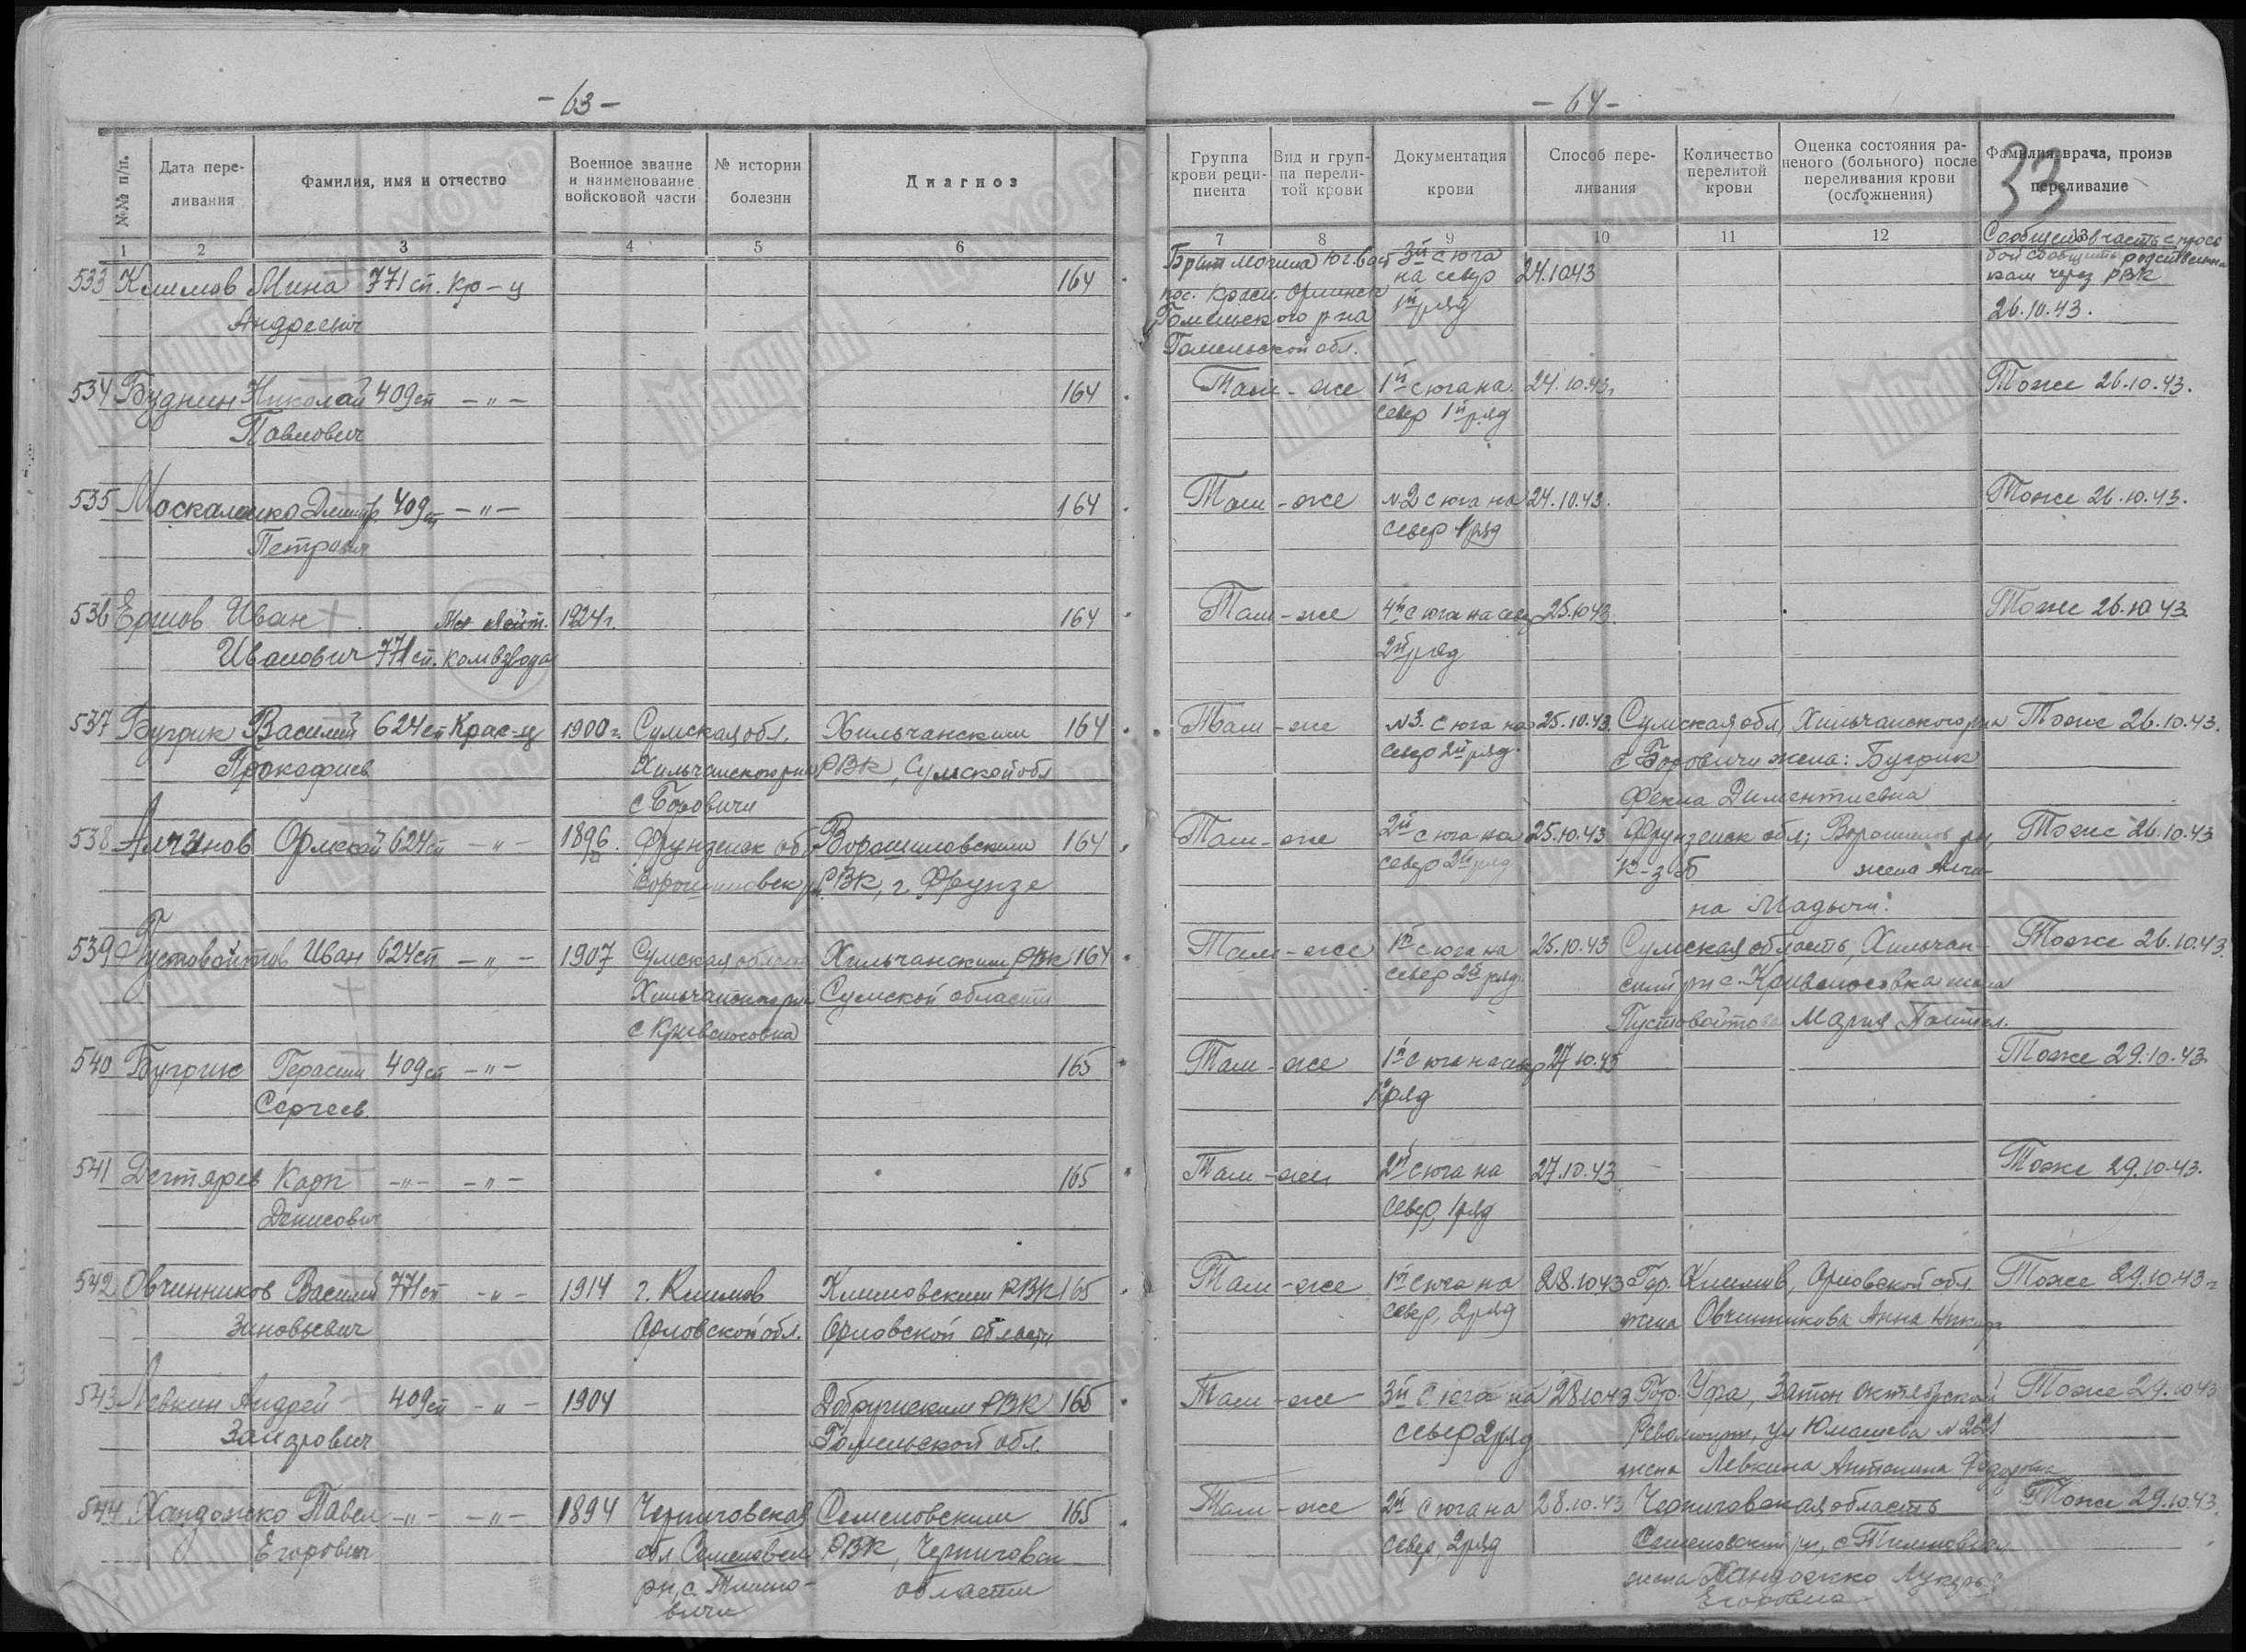 - 63 -
№№ п/п.
Дата пере-
ливания
Фамилия, имя и отчество
Военное звание
и наименование
войсковой части
№ истории
болезни
Диагноз
1 2 3 4 5 6
533 Климов Мина 771 сп. Кр-ц 164
Андреевич
534 Буднин Николай 409 сп -"- 164
Павлович
535 Москаленко Дмитр. 409 сп -"- 164
Петрович
536 Ершов Иван Мл Лейт. 1924 г. 164
Иванович 771 сп. Комвзвода
537 Бугрик Василий 624 сп Крас-ц 1900 г. Сумская обл. Хильчанским 164
Прокофиев Хильчанского р-на РВК, Сумской обл
с Боровичи
538 Алчинов 624 сп -"- 1896 Фрунзенск обл Ворошиловским 164
Ворошиловск р-н РВК, г. Фрунзе
539 Пустовойтов Иван 624 сп -"- 1907 Сумская область Хильчанским РВК 164
Хильчанского р-на Сумской области
с Кривоносовка
540 Бугрик Герасим 409 сп -"- 165
Сергеев.
541 Дегтярев Карп -"- -"- 165
Денисович
542 Овчинников Василий 771 сп -"- 1914 г. Климов Климовским РВК 165
Зиновьевич Орловской обл. Орловской области
543 Левкин Андрей 409 сп -"- 1904 Добрушским РВК 165
Гомельской обл.
544 Хандожко Павел -"- -"- 1894 Черниговская Семеновским 165
Егорович обл Семеновск РВК, Черниговск
рн, с. Тимо-
вичи области
- 64 -
33
Группа
крови реци-
пиента
Вид и груп-
па перели-
той крови
Документация
крови
Способ пере-
ливания
Количество
перелитой
крови
Оценка состояния ра-
неного (больного) после
переливания крови
(осложнения)
Фамилия врача, произв
переливание
7 8 9 10 11 12 13
Сообщено в часть с прось
бой сообщить родственни
кам через РВК
26.10.43.
Брат могила юг. вост 3й с юга 24.10.43
пос. Красн. на север
Гомельского р-на 1й ряд
Гомельской обл.
Там - же 1й с юга на 24.10.43. Тоже 26.10.43.
север 1й ряд
Там - же №2 с юга на 24.10.43. Тоже 26.10.43.
север 1 ряд
Там - же 4й с юга на север 25.10.43. Тоже 26.10.43
2й ряд
Там - же №3. с юга на 25.10.43. Сумская обл, Хильчанского р-на Тоже 26.10.43.
север 2й ряд. с Боровичи жена: Бугрик
Фекла Дементиевна
Там - же 2й с юга на 25.10.43 Фрунзенск обл; Ворошилов рн, Тоже 26.10.43
север 2й ряд жена Алчи-
на
Там - же 1й с юга на 25.10.43 Сумская область, Хильчан- Тоже 26.10.43.
север 2й ряд. ский рн с. Кривоносовка жена
Пустовойтова Мария
Там - же 1й с юга на север 27.10.43 Тоже 29.10.43
1й ряд
Там - же 2й с юга на 27.10.43 Тоже 29.10.43.
север, 1 ряд
Там - же 1й с юга на 28.10.43 Гор. Климов, Орловской обл. Тоже 29.10.43 г
север, 2 ряд жена Овчинникова Анна
Там - же 3й с юга на 28.10.43 Гор. Уфа, Затон Октябрьской Тоже 29.10.43
север 2 ряд Революции, ул Юмашева
жена Левкина Антонина Федоровна
Там - же 2й с юга на 28.10.43 Черниговская область Тоже 29.10.43.
север, 2 ряд Семеновский рн,
жена Хандожко Лукерья
Егоровна